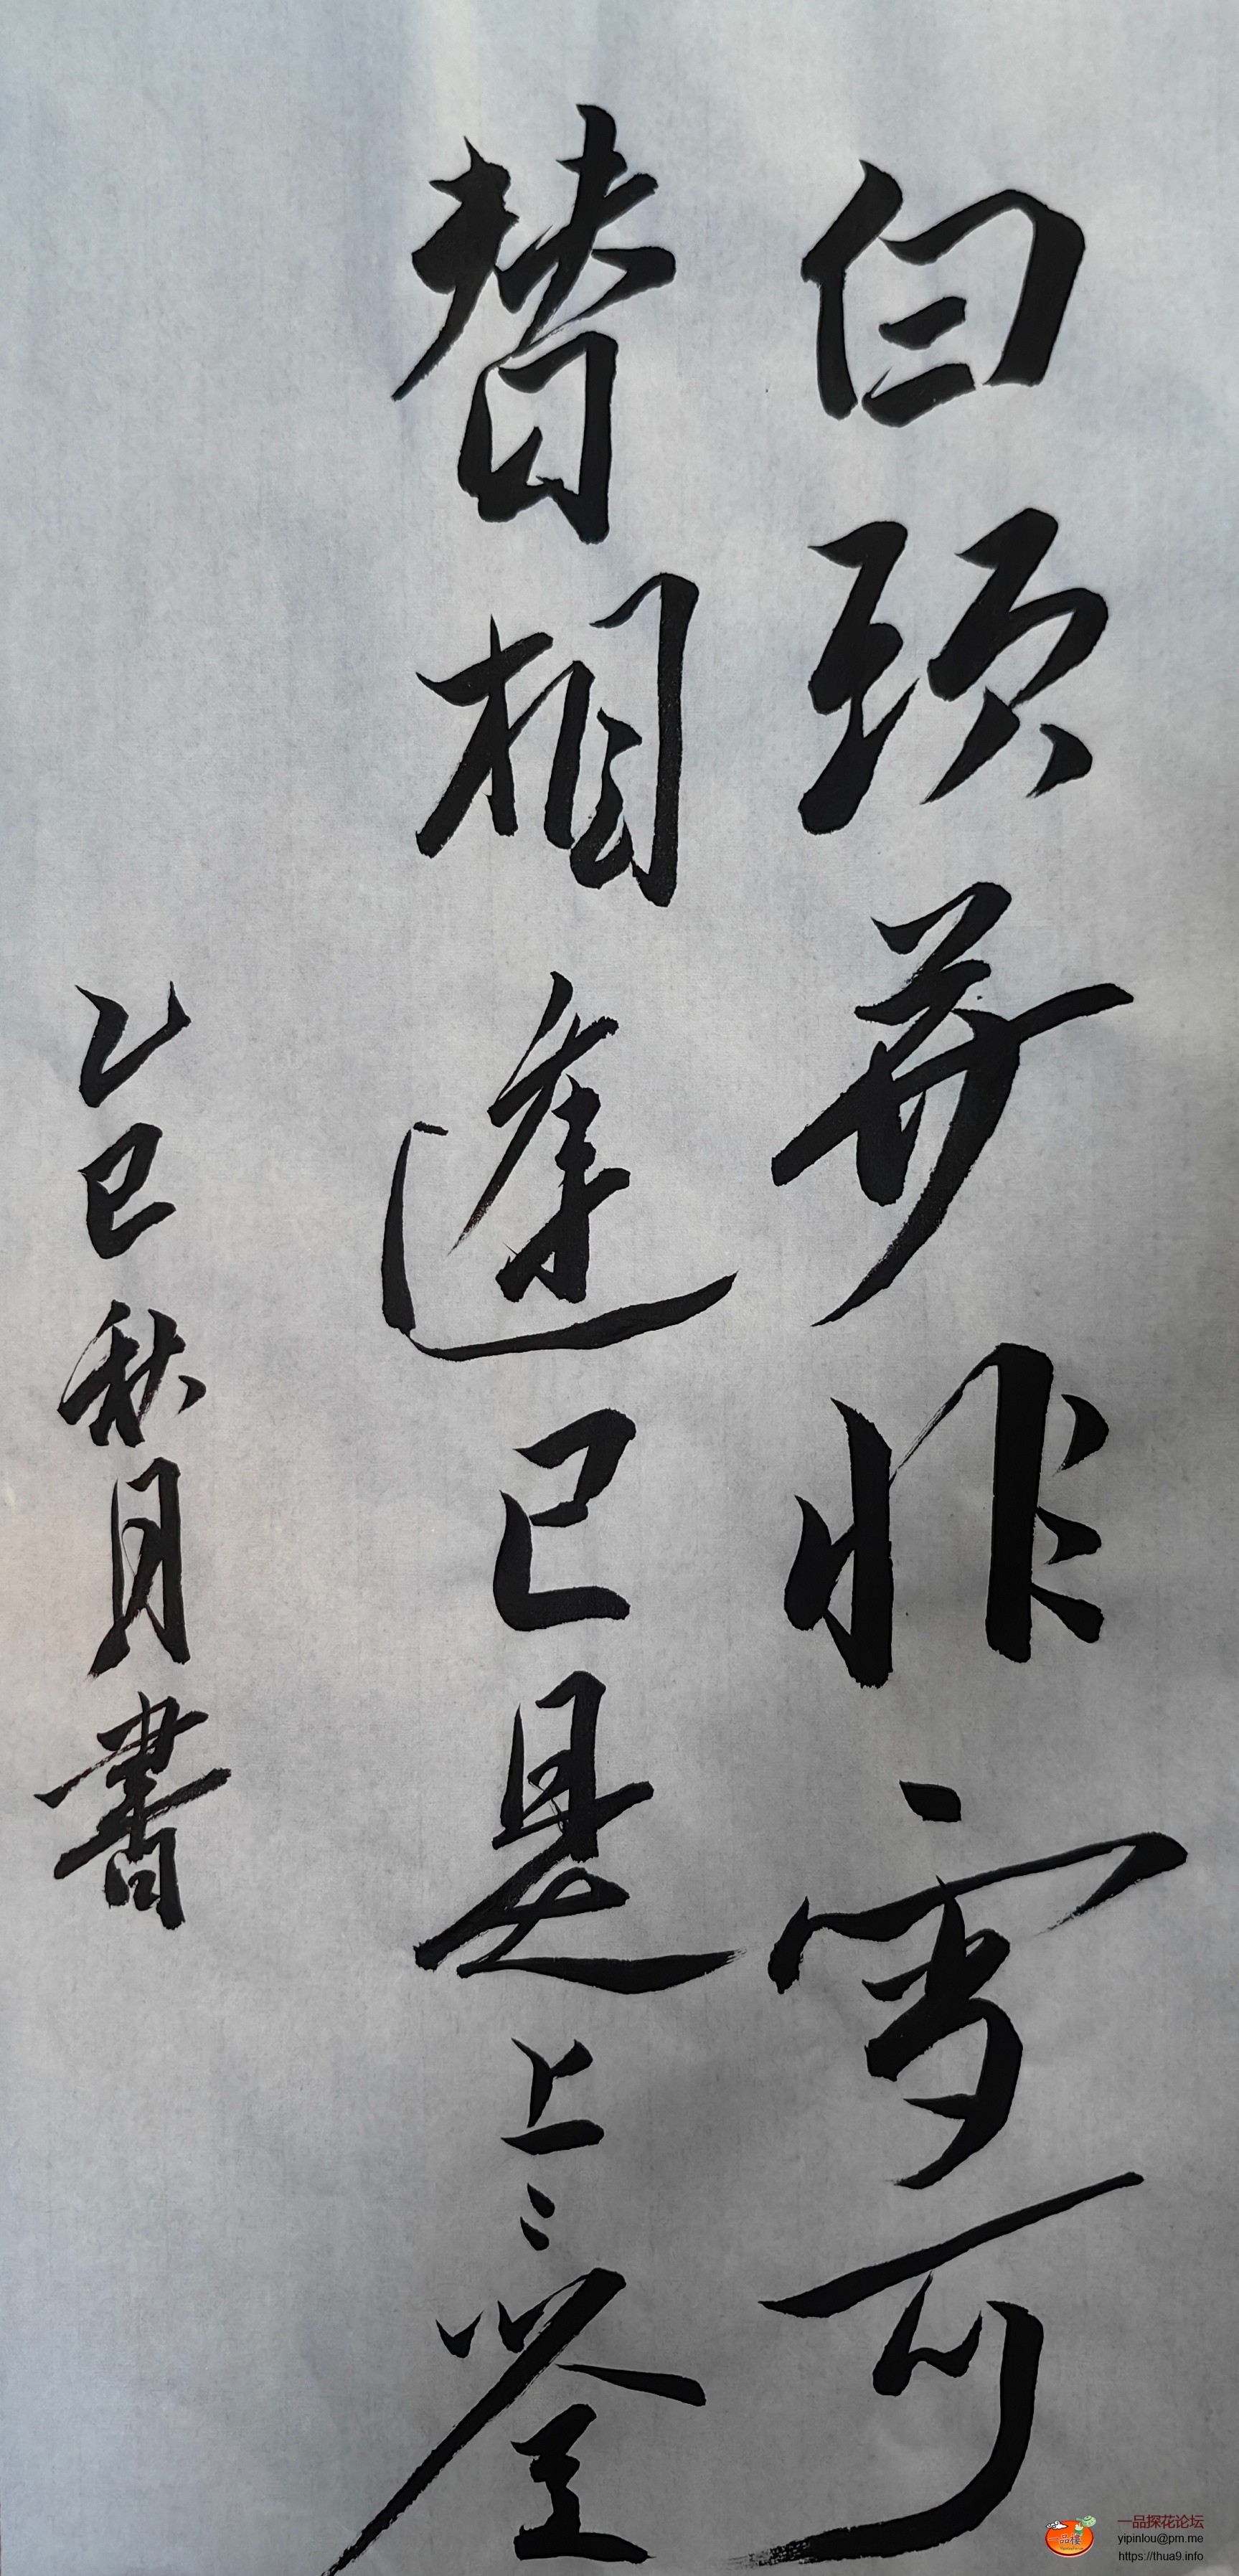 白頭并非雪可
替相逢已是上〻签
乙巳秋月書
一品樓
一品探花论坛
yipinlou@pm.me
https://thua9.info